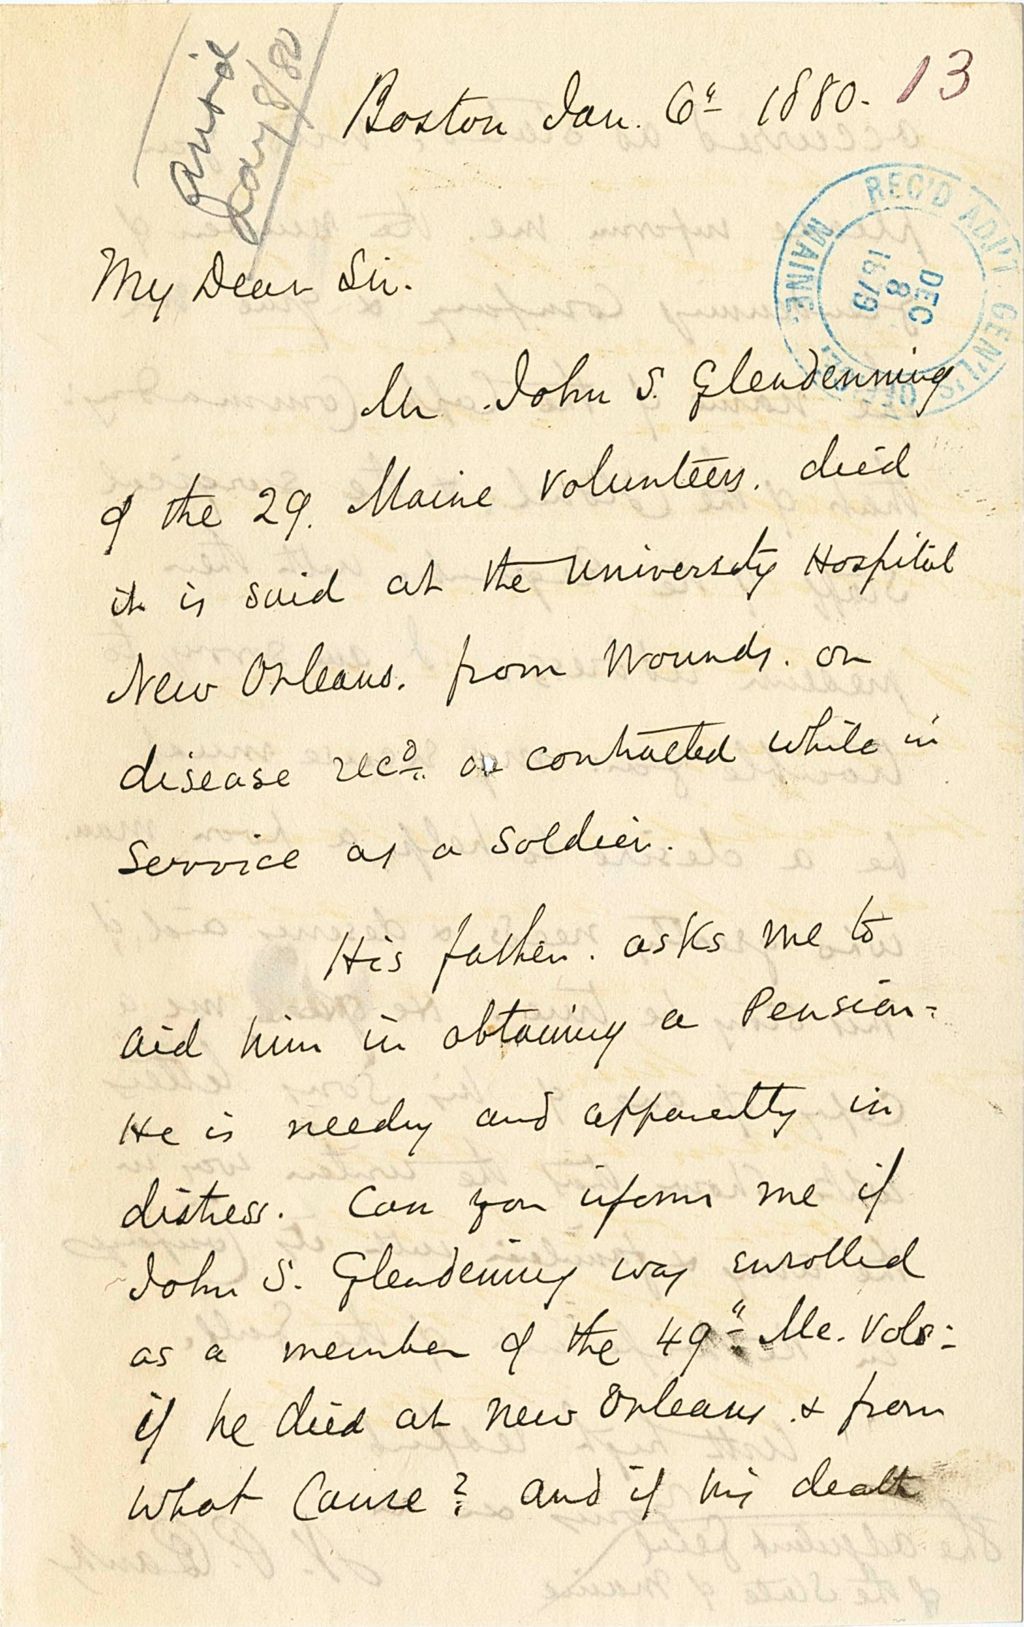 Ans'd
Jany 8/80
Boston Jan. 6" 1880.
13
REC'D ADJ'T GEN'L'S OFFICE MAINE.
DEC
8
1879
My Dear Sir.
Mr. John S. Glendenning
of the 29. Maine Volunteers. died
it is said at the University Hospital
New Orleans. from wounds. or
disease rec'd. or contracted while in
service as a soldier.
His father. asks me to
aid him in obtaining a Pension=
He is needy and apparently in
distress. Can you inform me if
John S. Glendenning was enrolled
as a member of the 49" Me. Vols=
if he died at New Orleans & from
what Cause? and if his death